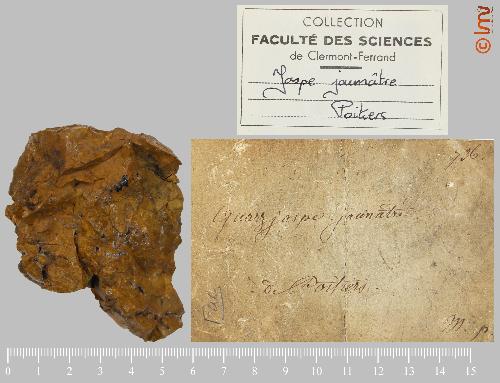 © lmv
COLLECTION
FACULTÉ DES SCIENCES
de Clermont-Ferrand
Jaspe jaunâtre
Poitiers
736.
Quarz jaspe jaunâtre
de Poitiers.
Fac
m. p.
0 1 2 3 4 5 6 7 8 9 10 11 12 13 14 15